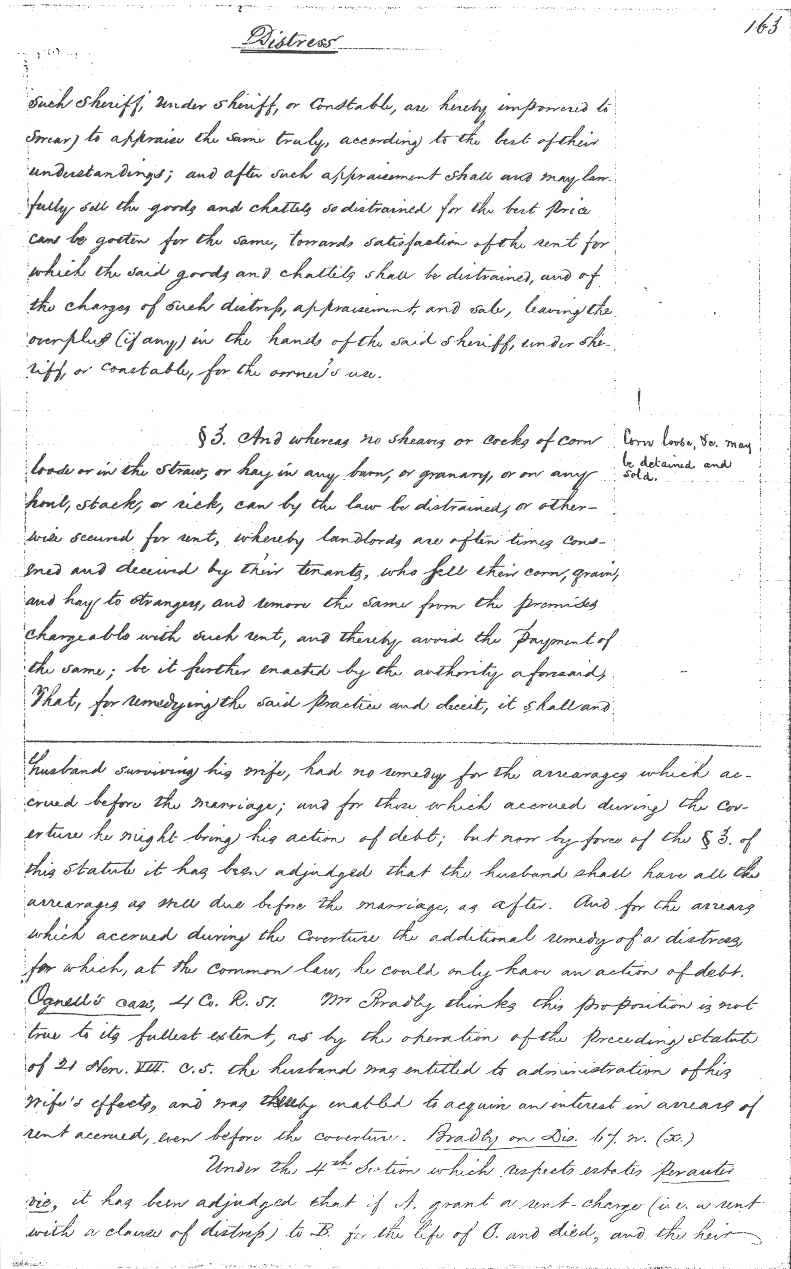 163
Distress
such sheriff, under sheriff, or constable, are hereby impowered to
swear) to appraise the same truly, according to the best of their
understandings; and after such appraisement shall and may law-
fully sell the goods and chattels so distrained for the best price
can be gotten for the same, towards satisfaction of the rent for
which the said goods and chattels shall be distrained, and of
the charges of such distress, appraisement, and sale, leaving the
overplus (if any) in the hands of the said sheriff, under she-
riff, or constable, for the owner's use.
§3. And whereas no sheaves or cocks of corn
loose or in the straw, or hay in any barn, or granary, or on any
hovel, stack, or rick, can by the law be distrained, or other-
wise secured for rent, whereby landlords are often times cose-
ned and deceived by their tenants, who sell their corn, grain,
and hay to strangers, and remove the same from the premises
chargeable with such rent, and thereby avoid the payment of
the same; be it further enacted by the authority aforesaid,
That, for remedying the said practice and deceit, it shall and
Corn loose, &c. may
be detained and
sold.
husband surviving his wife, had no remedy for the arrearages which ac-
crued before the marriage; and for those which accrued during the cov-
erture he might bring his action of debt; but now by force of the §3. of
this statute it has been adjudged that the husband shall have all the
arrearages as well due before the marriage, as after. And for the arrears
which accrued during the coverture the additional remedy of a distress,
for which, at the common law, he could only have an action of debt.
Ognell's case, 4 Co. R. 51. Mr Bradby thinks this proposition is not
true to its fullest extent, as by the operation of the preceding statute
of 21 Hen. VIII. c.5. the husband was entitled to administration of his
wife's effects, and was thereby enabled to acquire an interest in arrears of
rent accrued, even before the coverture. Bradby on Dis. 67. n. (x.)
Under the 4th Section which respects estates per auter
vie, it has been adjudged that if A. grant a rent-charge (i.e. a rent
with a clause of distress) to B. for the life of C. and died, and the heir